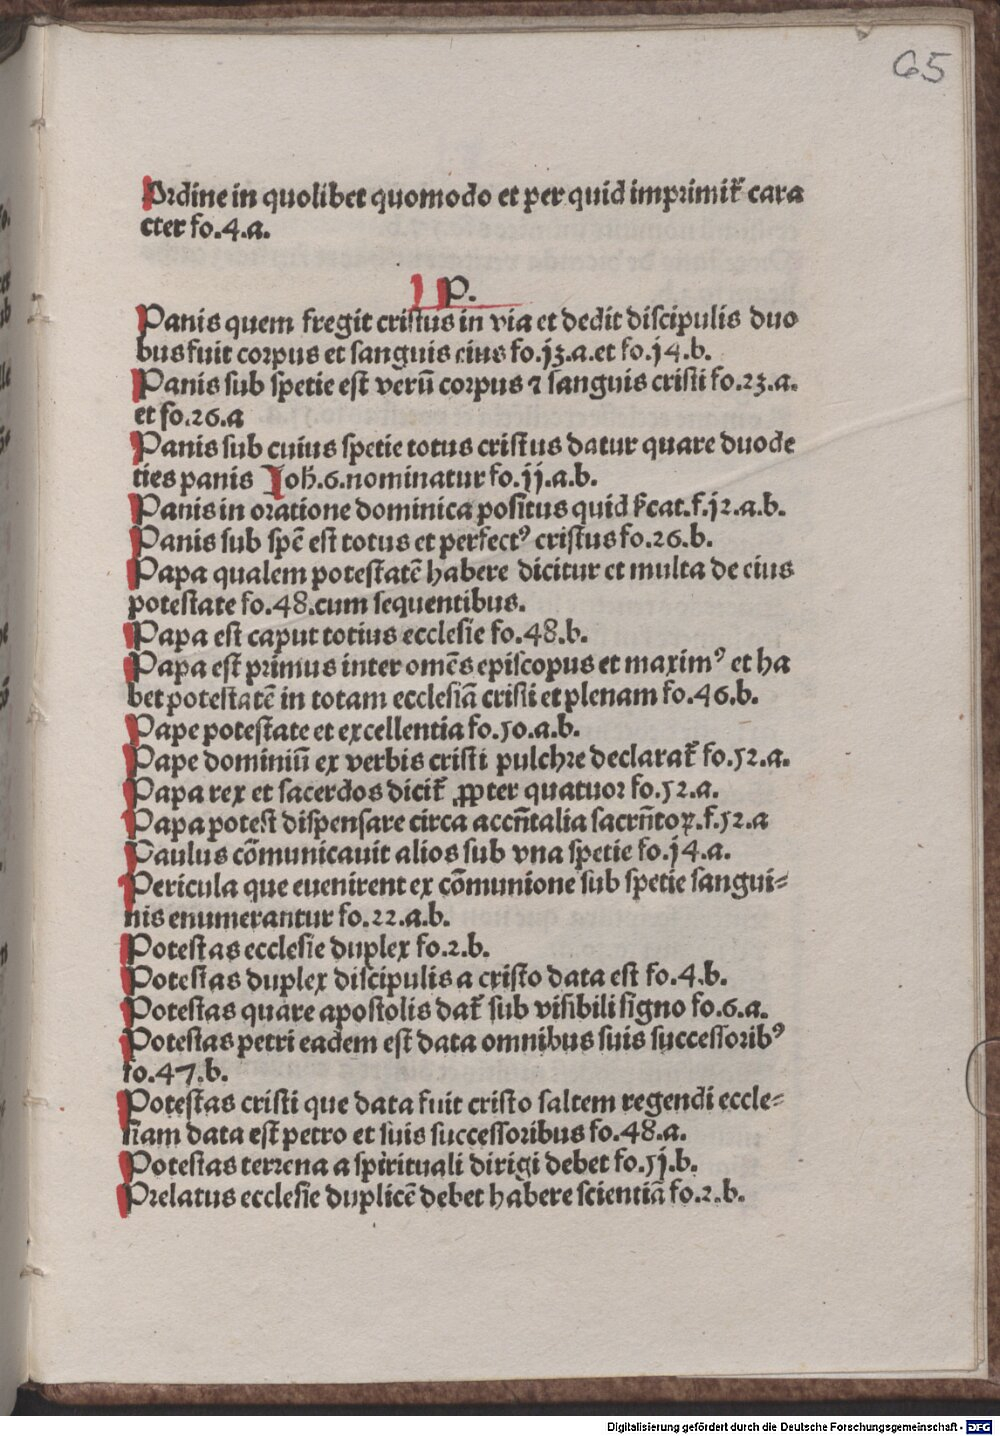 65
Ordine in quolibet quomodo et per quid imprimit᷑ cara
cter fo.4.a.
P.
Panis quem fregit cristus in via et dedit discipulis duo
bus fuit corpus et sanguis eius fo.j3.a.et fo.j4.b.
Panis sub spetie est verū corpus ⁊ sanguis cristi fo.23.a.
et fo.26.a
Panis sub cuius spetie totus cristus datur quare duode
ties panis Joh̄.6.nominatur fo.jj.a.b.
Panis in oratione dominica positus quid ẜcat.f.j2.a.b.
Panis sub spē est totus et perfectꝰ cristus fo.26.b.
Papa qualem potestatē habere dicitur et multa de eius
potestate fo.48.cum sequentibus.
Papa est caput totius ecclesie fo.48.b.
Papa est primus inter omēs episcopus et maximꝰ et ha
bet potestatē in totam ecclesiā cristi et plenam fo.46.b.
Pape potestate et excellentia fo.50.a.b.
Pape dominiū ex verbis cristi pulchre declarat᷑ fo.52.a.
Papa rex et sacerdos dicit᷑ ꝓpter quatuor fo.52.a.
Papa potest dispensare circa accn̄talia sacrn̄toꝝ.f.52.a
Paulus cōmunicauit alios sub vna spetie fo.j4.a.
Pericula que euenirent ex cōmunione sub spetie sangui⸗
nis enumerantur fo.22.a.b.
Potestas ecclesie duplex fo.2.b.
Potestas duplex discipulis a cristo data est fo.4.b.
Potestas quare apostolis dat᷑ sub visibili signo fo.6.a.
Potestas petri eadem est data omnibus suis successoribꝰ
fo.47.b.
Potestas cristi que data fuit cristo saltem regendi eccle⸗
siam data est petro et suis successoribus fo.48.a.
Potestas terrena a spirituali dirigi debet fo.5j.b.
Prelatus ecclesie duplicē debet habere scientiā fo.2.b.
Digitalisierung gefördert durch die Deutsche Forschungsgemeinschaft - DFG